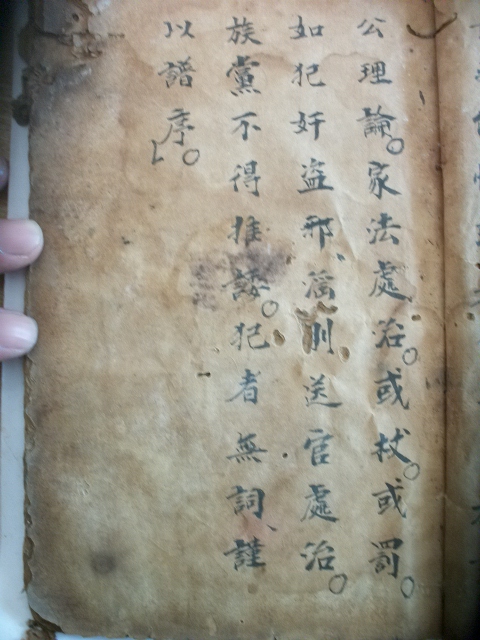 公理論。家法處治。或杖。或罰。
如犯奸盜邪淫則送官處治。
族黨不得推諉。犯者無詞謹
以譜序。